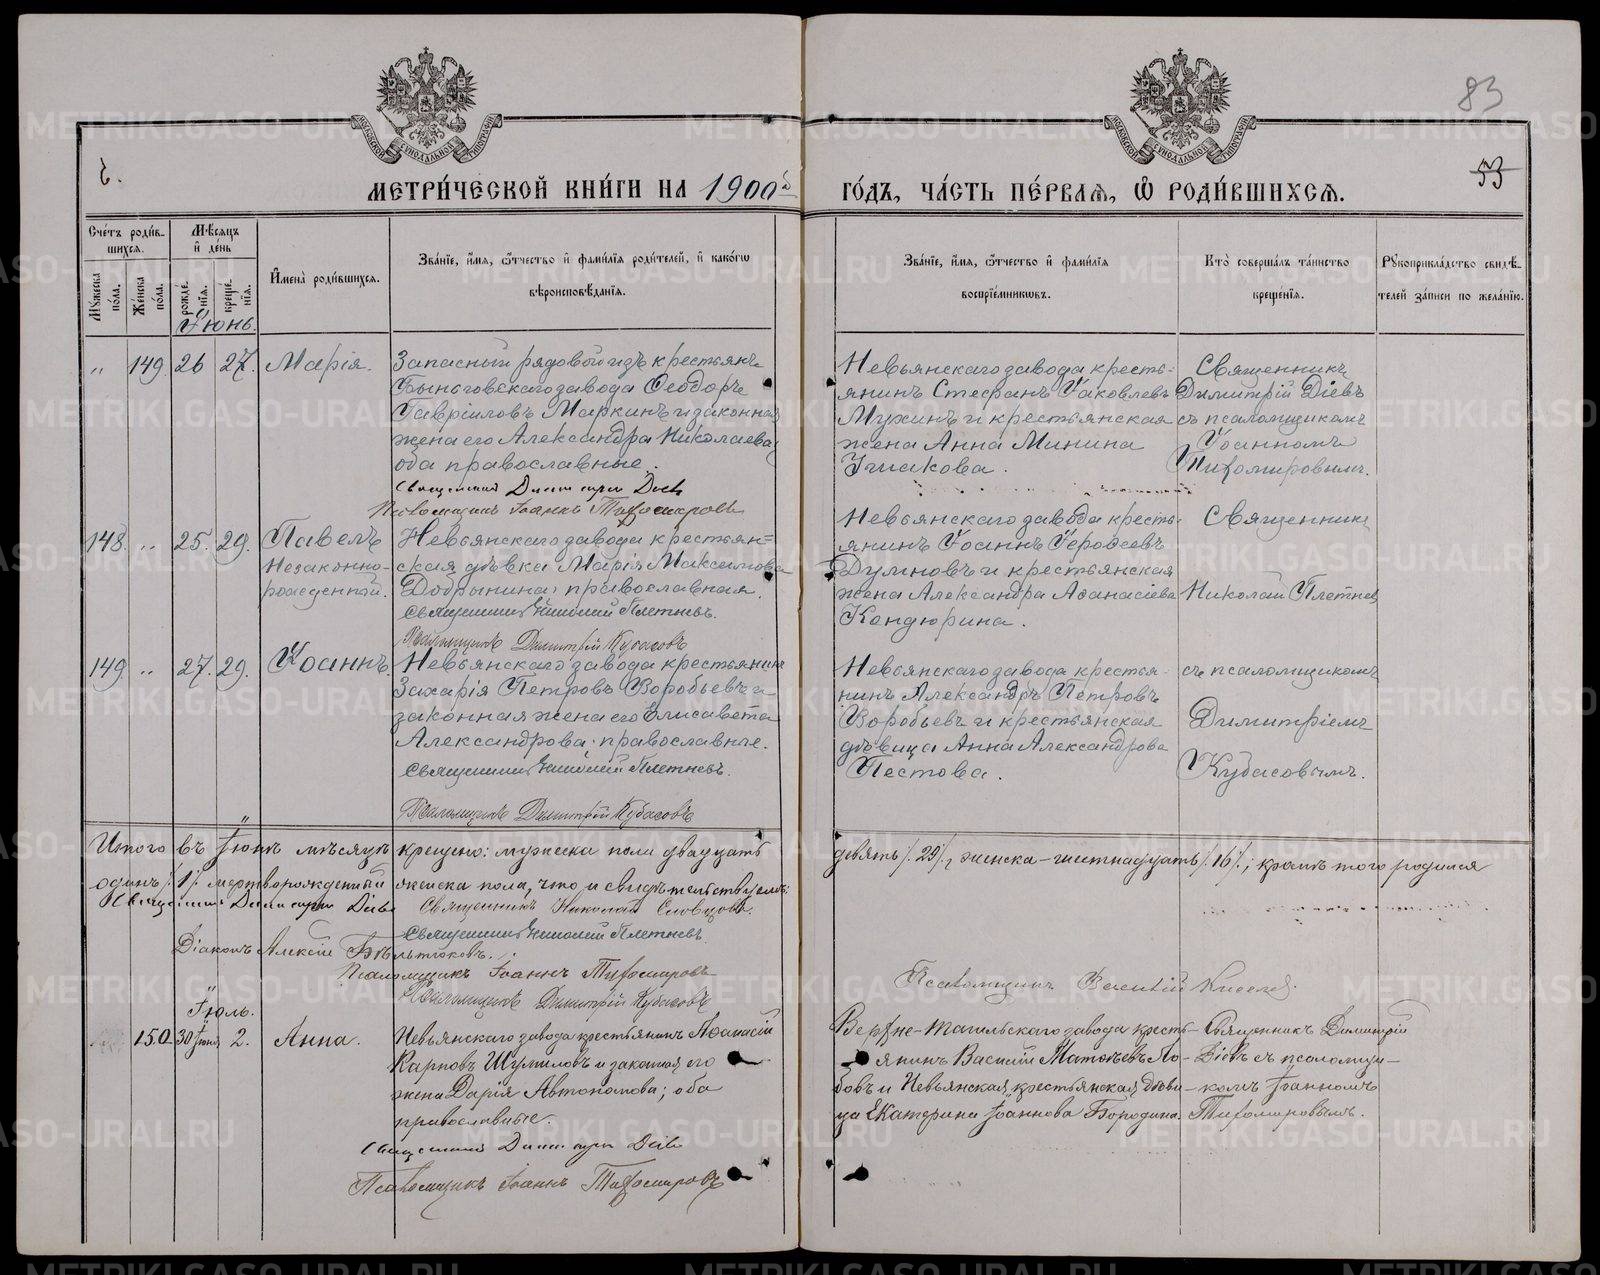 83
53
МЕТРИ́ЧЕСКОЙ КНИ́ГИ НА 1900й ГО́ДЪ, ЧА́СТЬ ПЕ́РВАЯ, Ѡ РОДИ́ВШИХСЯ.
Счетъ роди́вшихся.
Мужеска по́ла.
Женска по́ла.
Мѣсяцъ и де́нь
рожде́нія.
креще́нія.
Имена роди́вшихся.
Зва́ніе, и́мя, о́тчество и фами́лія роди́телей, и како́гѡ вѣроисповѣ́данія.
Зва́ніе, и́мя, о́тчество и фами́лія воспріе́мникѡвъ.
Кто̀ соверша́лъ та́инство креще́нія.
Рукоприкла́дство свидѣ́телей за́писи по жела́нію.
Іюнь.
„ 149. 26 27. Марія.
Запасный рядовой изъ крестьянъ
Быньговскаго завода Ѳеодоръ
Гавріиловъ Маркинъ и законная
жена его Александра Николаева,
оба православные.
Священникъ Димитрій Діевъ
Псаломщикъ Іоаннъ Тихомировъ
Невьянскаго завода кресть-
янинъ Стефанъ Іаковлевъ
Мухинъ и крестьянская
жена Анна Минина
Ушакова.
Священникъ
Димитрій Діевъ
съ псаломщикомъ
Іоанномъ
Тихомировымъ.
148. „ 25. 29. Павелъ
незаконно-
рожденный.
Невьянскаго завода крестьян=
ская дѣвка Марія Максимова
Добрынина, православная.
Священникъ Николай Плетневъ.
Псаломщикъ Димитрій Кубасовъ
Невьянскаго завода кресть-
янинъ Іоаннъ Іероѳеевъ
Думновъ и крестьянская
жена Александра Аѳанасіева
Кондюрина.
Священникъ
Николай Плетневъ
149. „ 27. 29. Іоаннъ.
Невьянскаго завода крестьянинъ
Захарія Петровъ Воробьевъ и
законная жена его Елисавета
Александрова, православные.
Священникъ Николай Плетневъ.
Псаломщикъ Димитрій Кубасовъ
Невьянскаго завода крестья-
нинъ Александръ Петровъ
Воробьевъ и крестьянская
дѣвица Анна Александрова
Пестова.
съ псаломщикомъ
Димитріемъ
Кубасовымъ.
Итого въ Іюнѣ мѣсяцѣ крещено: мужеска пола двадцать девять /29/, женска-шестнадцать /16/; кромѣ того родился
одинъ /1/ мертворожденный женска пола, что и свидѣтельствуемъ:
Священникъ Димитрій Діевъ Священникъ Николай Словцовъ.
Священникъ Николай Плетневъ
Діаконъ Алексій Бѣльтюковъ.
Псаломщикъ Іоаннъ Тихомировъ
Псаломщикъ Димитрій Кубасовъ
Псаломщикъ Василій Киселев.
Іюль.
150. 30 Іюня 2. Анна.
Невьянскаго завода крестьянинъ Аѳанасій
Карповъ Шумиловъ и законная его
жена Дарія Автономова; оба
православные.
Священникъ Димитрій Діевъ
Псаломщикъ Іоаннъ Тихомировъ
Верхне-Тагильскаго завода кресть-
янинъ Василій Матвѣевъ Ло-
бовъ и Невьянская крестьянская дѣви-
ца Екатерина Іоаннова Бородина.
Священникъ Димитрій
Діевъ съ псаломщи-
комъ Іоанномъ
Тихомировымъ.